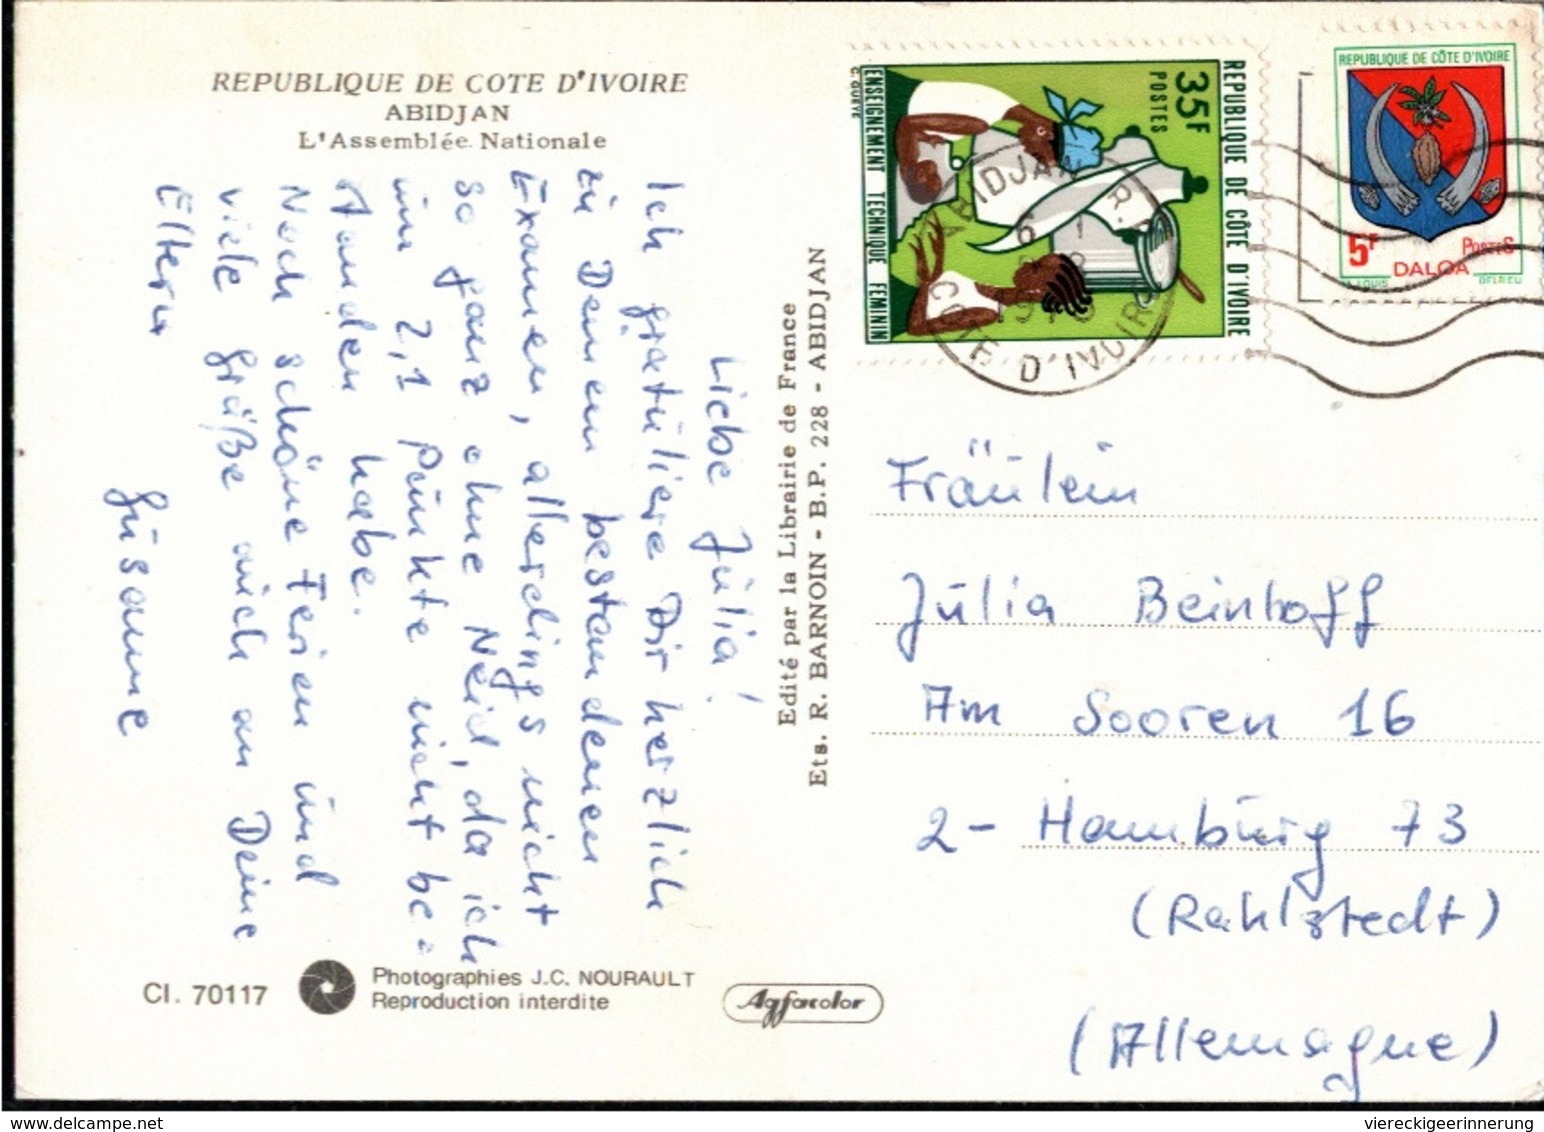 REPUBLIQUE DE COTE D'IVOIRE
ABIDJAN
L'Assemblée Nationale
Liebe Julia!
Ich gratuliere Dir herzlich
zu Deinem bestandenen
Examen, allerdings nicht
so ganz ohne Neid, da ich
um 2,1 Punkte nicht be-
standen habe.
Noch schöne Ferien und
viele Grüße auch an Deine
Eltern
Susanne
CI. 70117
Photographies J.C. NOURAULT
Reproduction interdite
Agfacolor
Edité par la Librairie de France
Ets. R. BARNOIN - B.P. 228 - ABIDJAN
REPUBLIQUE DE CÔTE D'IVOIRE
35F
POSTES
ENSEIGNEMENT TECHNIQUE FEMININ
C. GUEYE
ABIDJAN R.P.
COTE D'IVOIRE
REPUBLIQUE DE CÔTE D'IVOIRE
5F
POSTES
DALOA
Fräulein
Julia Beinhoff
Am Sooren 16
2- Hamburg 73
(Rahlstedt)
(Allemagne)
viereckigeerinnerung